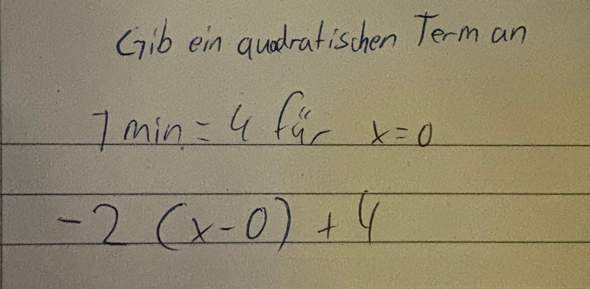 Gib ein quadratischen Term an
Tmin = 4 für x=0
-2 (x-0) + 4